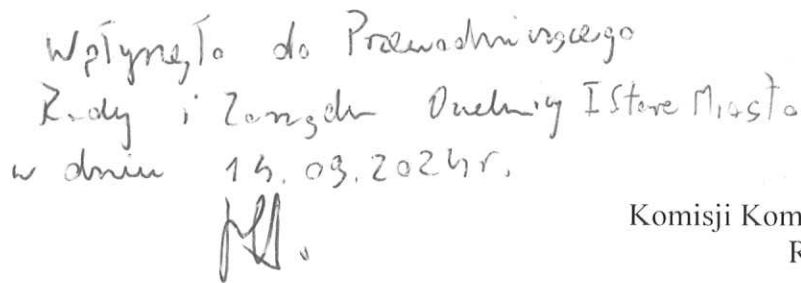 Wpłynęło do Przewodniczącego
Rady i Zarządu Dzielnicy I Stare Miasto
w dniu 14.03.2024r.
Komisji Kom
R